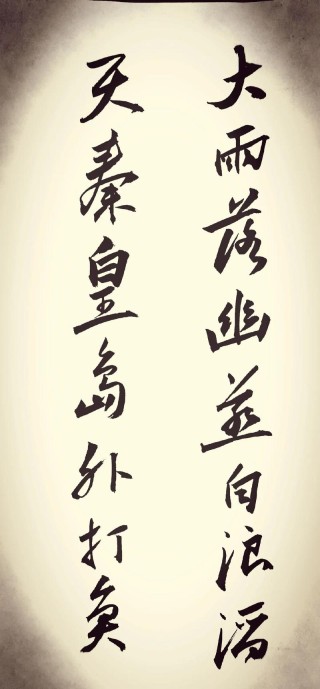 大雨落幽燕白浪滔
天秦皇島外打魚